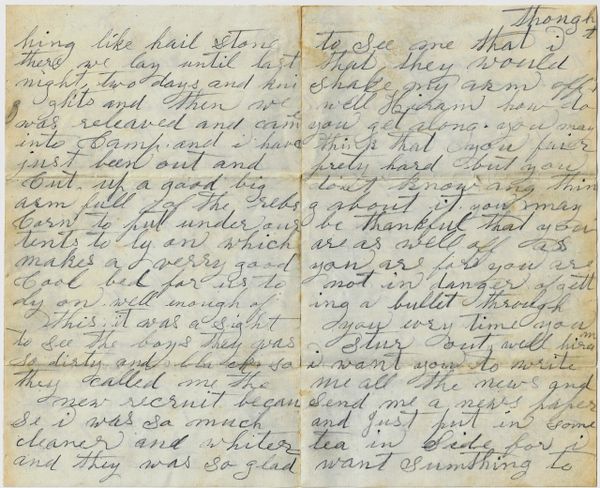 hing like hail stone
there we lay until last
night two days and kni
ghts and then we
was releaved and came
into Camp. and i have
just been out and
Cut up a good big
arm full of the rebs
Corn to put under our
tents to ly on which
makes a verry good
Cool bed for us to
ly on. well enough of
this. it was a sight
to see the boys they was
so dirty and black so
they called me the
new recruit becau
se i was so much
cleaner and whiter
and they was so glad
to see me that i thought
that they would
shake my arm off.
well Hiram how do
you get along. you may
think that you fare
prety hard but you
dont know any thin
g about it. you may
be thankful that you
are as well off as
you are for you are
not in danger of gett
ing a bullet through
you evry time you
stur out. well hiram
i want you to write
me all the news and
send me a news paper
and just put in some
tea in side for i
want sumthing to